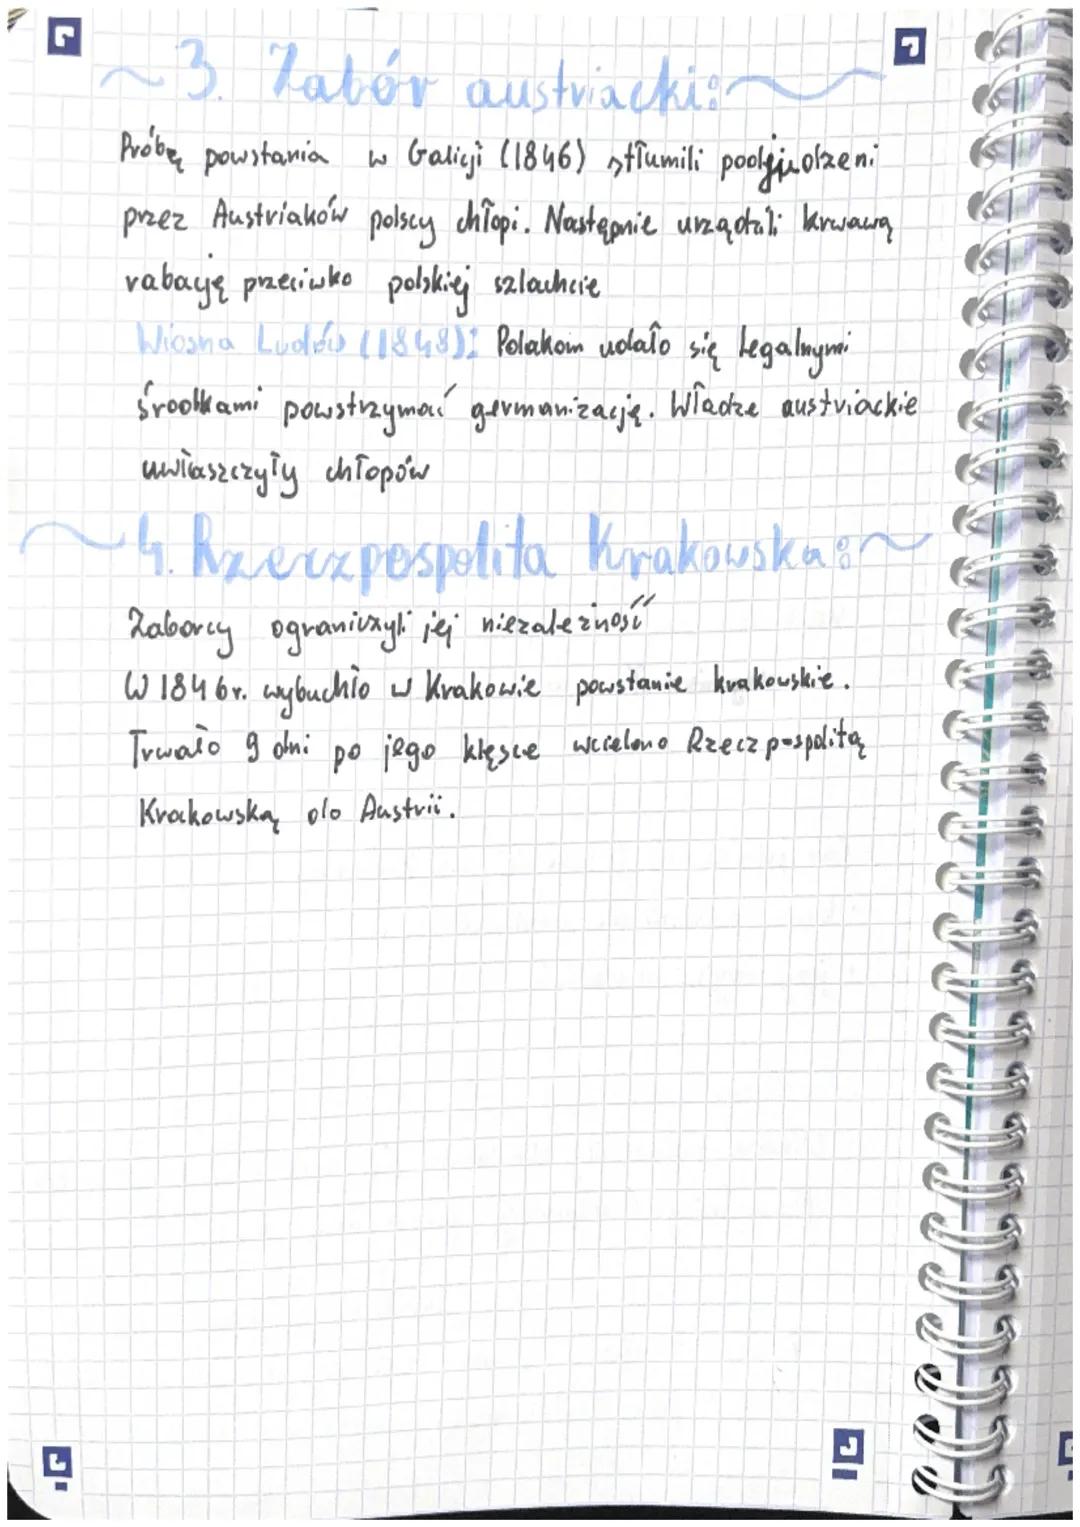 ~3. Zabór austriacki:~
Próbę powstania w Galicji (1846) stłumili podjudzeni
przez Austriaków polscy chłopi. Następnie urządzili krwawą
rabację przeciwko polskiej szlachcie
Wiosna Ludów (1848): Polakom udało się legalnymi
środkami powstrzymać germanizację. Władze austriackie
uwłaszczyły chłopów
~4. Rzeczpospolita Krakowska:~
Zaborcy ograniczyli jej niezależność
W 1846r. wybuchło w Krakowie powstanie krakowskie.
Trwało 9 dni po jego klęsce wcielono Rzeczpospolitą
Krakowską do Austrii.